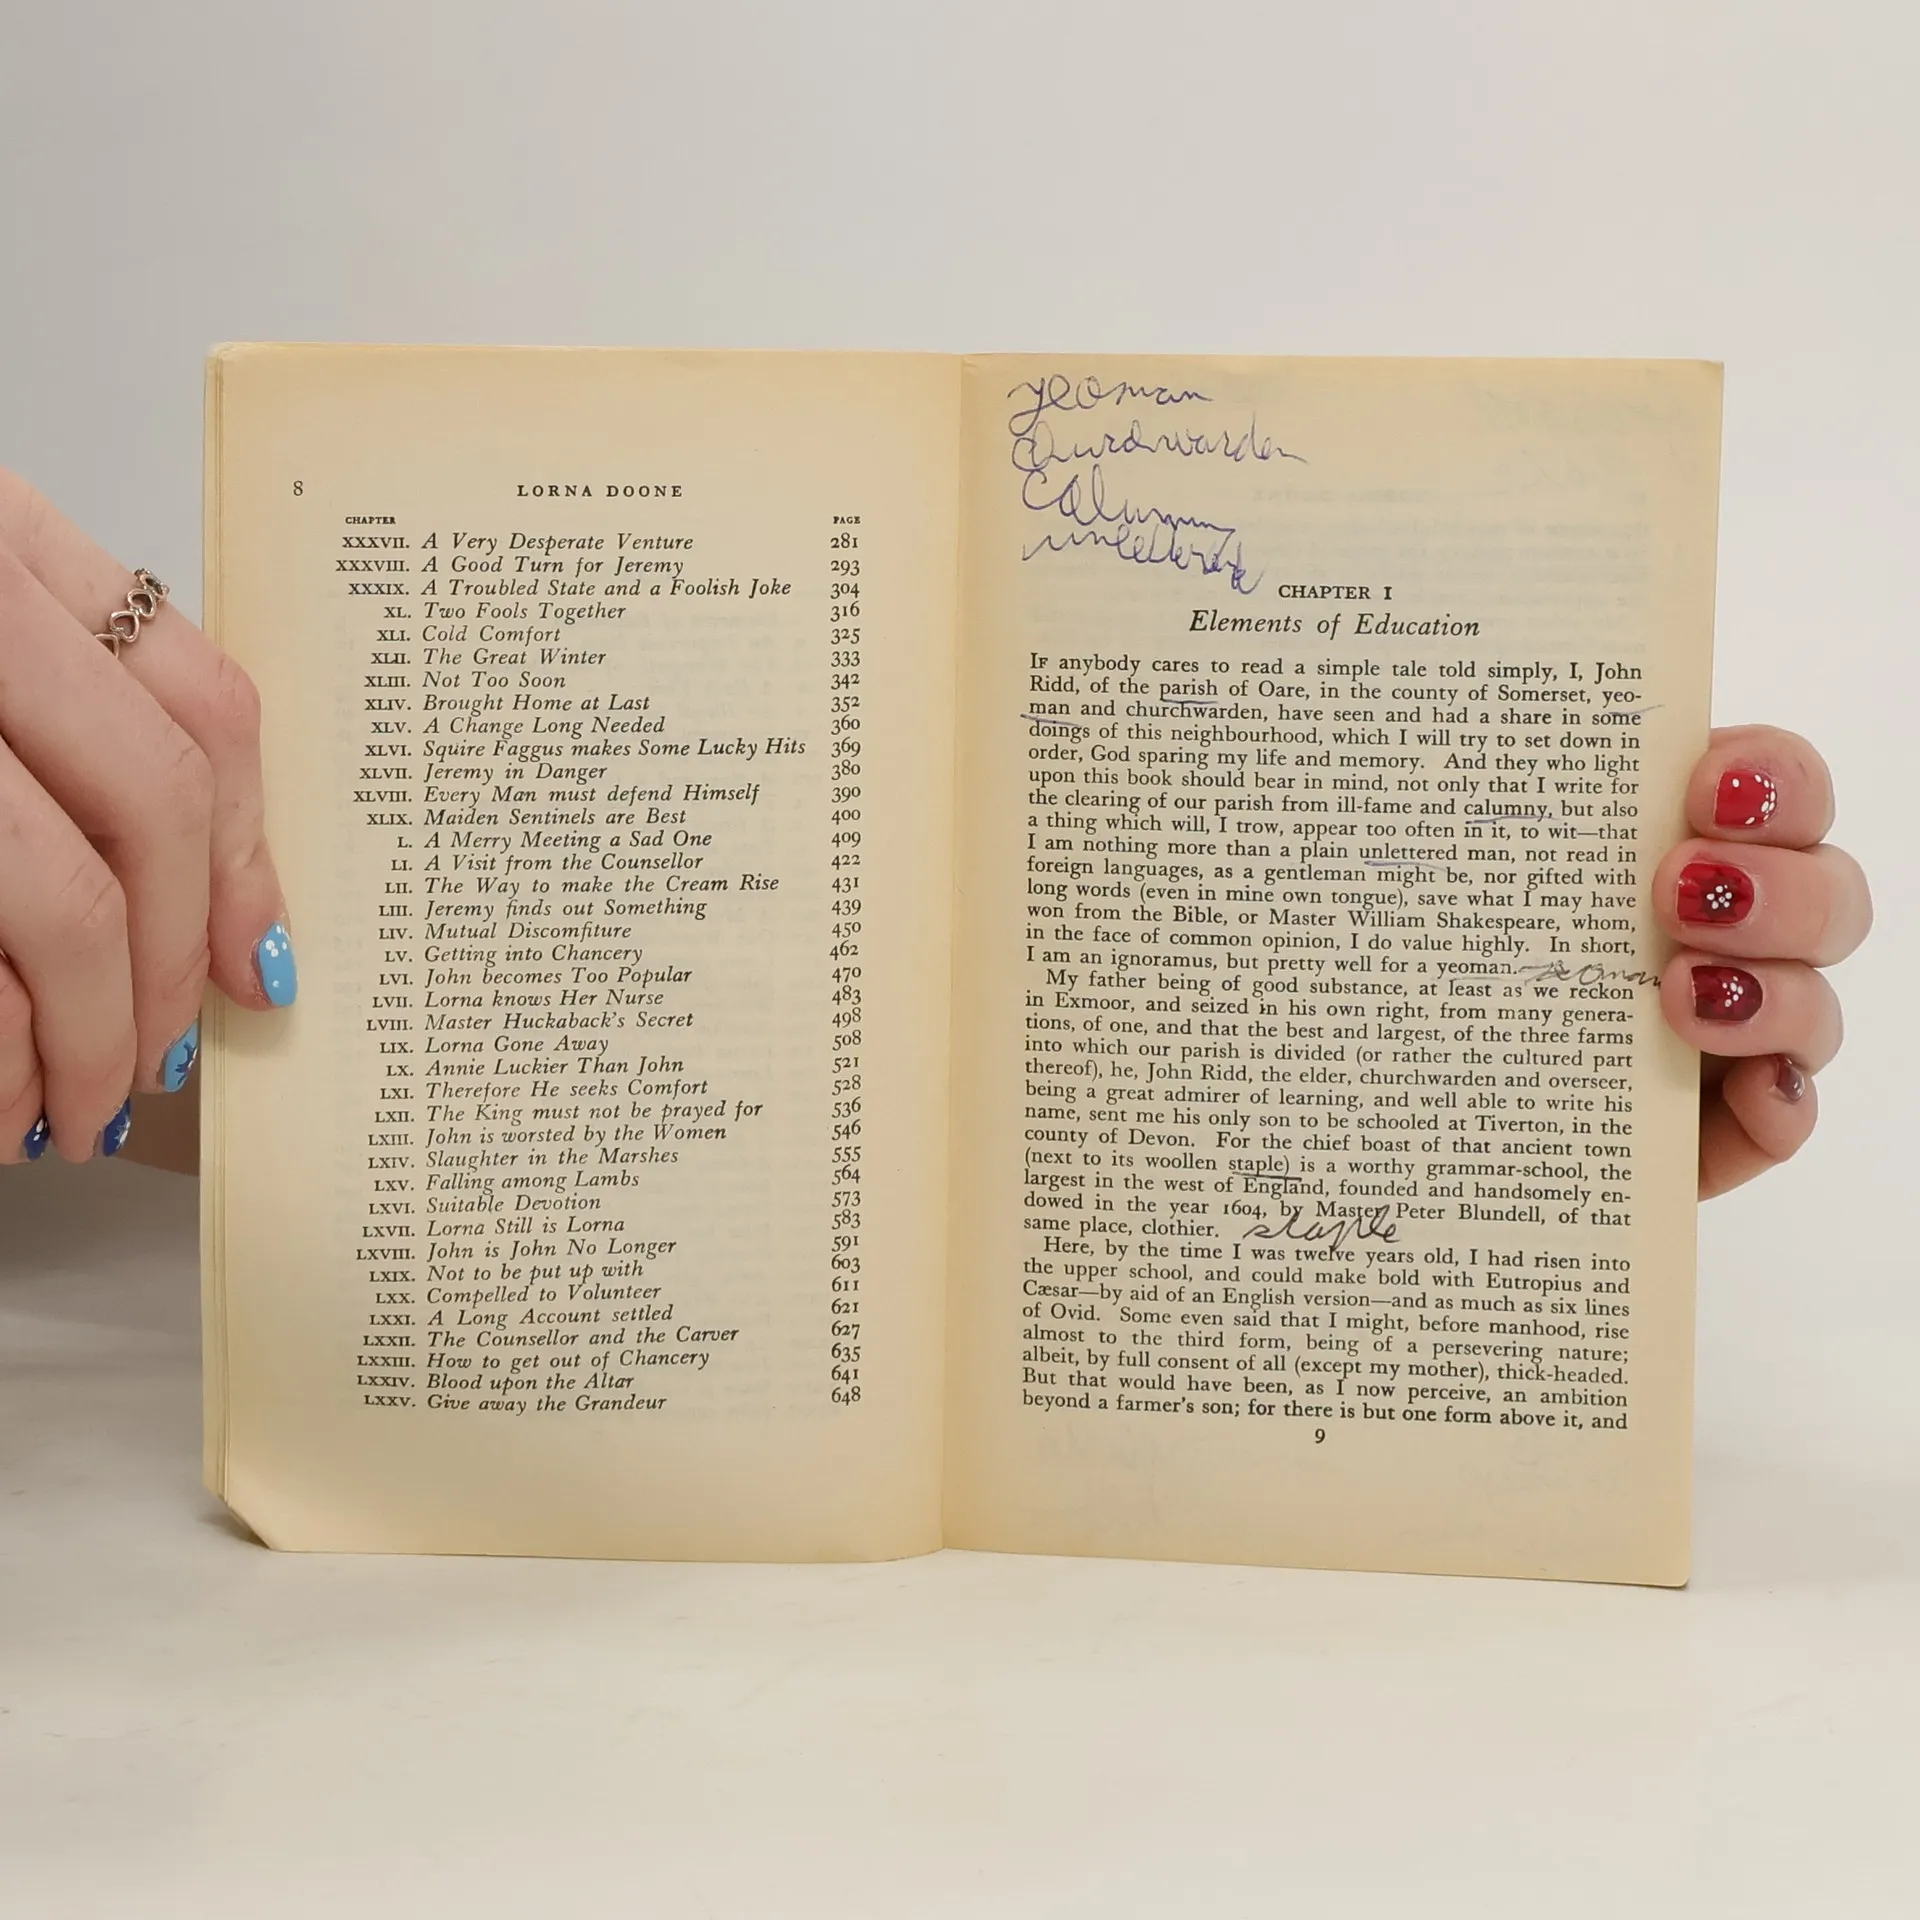 8 LORNA DOONE
CHAPTER PAGE
XXXVII. A Very Desperate Venture 281
XXXVIII. A Good Turn for Jeremy 293
XXXIX. A Troubled State and a Foolish Joke 304
XL. Two Fools Together 316
XLI. Cold Comfort 325
XLII. The Great Winter 333
XLIII. Not Too Soon 342
XLIV. Brought Home at Last 352
XLV. A Change Long Needed 360
XLVI. Squire Faggus makes Some Lucky Hits 369
XLVII. Jeremy in Danger 380
XLVIII. Every Man must defend Himself 390
XLIX. Maiden Sentinels are Best 400
L. A Merry Meeting a Sad One 409
LI. A Visit from the Counsellor 422
LII. The Way to make the Cream Rise 431
LIII. Jeremy finds out Something 439
LIV. Mutual Discomfiture 450
LV. Getting into Chancery 462
LVI. John becomes Too Popular 470
LVII. Lorna knows Her Nurse 483
LVIII. Master Huckaback's Secret 498
LIX. Lorna Gone Away 508
LX. Annie Luckier Than John 521
LXI. Therefore He seeks Comfort 528
LXII. The King must not be prayed for 536
LXIII. John is worsted by the Women 546
LXIV. Slaughter in the Marshes 555
LXV. Falling among Lambs 564
LXVI. Suitable Devotion 573
LXVII. Lorna Still is Lorna 583
LXVIII. John is John No Longer 591
LXIX. Not to be put up with 603
LXX. Compelled to Volunteer 611
LXXI. A Long Account settled 621
LXXII. The Counsellor and the Carver 627
LXXIII. How to get out of Chancery 635
LXXIV. Blood upon the Altar 641
LXXV. Give away the Grandeur 648
yeoman
Churchwarden
Calumny
unlettered
CHAPTER I
Elements of Education
IF anybody cares to read a simple tale told simply, I, John
Ridd, of the parish of Oare, in the county of Somerset, yeo-
man and churchwarden, have seen and had a share in some
doings of this neighbourhood, which I will try to set down in
order, God sparing my life and memory. And they who light
upon this book should bear in mind, not only that I write for
the clearing of our parish from ill-fame and calumny, but also
a thing which will, I trow, appear too often in it, to wit—that
I am nothing more than a plain unlettered man, not read in
foreign languages, as a gentleman might be, nor gifted with
long words (even in mine own tongue), save what I may have
won from the Bible, or Master William Shakespeare, whom,
in the face of common opinion, I do value highly. In short,
I am an ignoramus, but pretty well for a yeoman. yeoman
My father being of good substance, at least as we reckon
in Exmoor, and seized in his own right, from many genera-
tions, of one, and that the best and largest, of the three farms
into which our parish is divided (or rather the cultured part
thereof), he, John Ridd, the elder, churchwarden and overseer,
being a great admirer of learning, and well able to write his
name, sent me his only son to be schooled at Tiverton, in the
county of Devon. For the chief boast of that ancient town
(next to its woollen staple) is a worthy grammar-school, the
largest in the west of England, founded and handsomely en-
dowed in the year 1604, by Master Peter Blundell, of that
same place, clothier. staple
Here, by the time I was twelve years old, I had risen into
the upper school, and could make bold with Eutropius and
Cæsar—by aid of an English version—and as much as six lines
of Ovid. Some even said that I might, before manhood, rise
almost to the third form, being of a persevering nature;
albeit, by full consent of all (except my mother), thick-headed.
But that would have been, as I now perceive, an ambition
beyond a farmer's son; for there is but one form above it, and
9